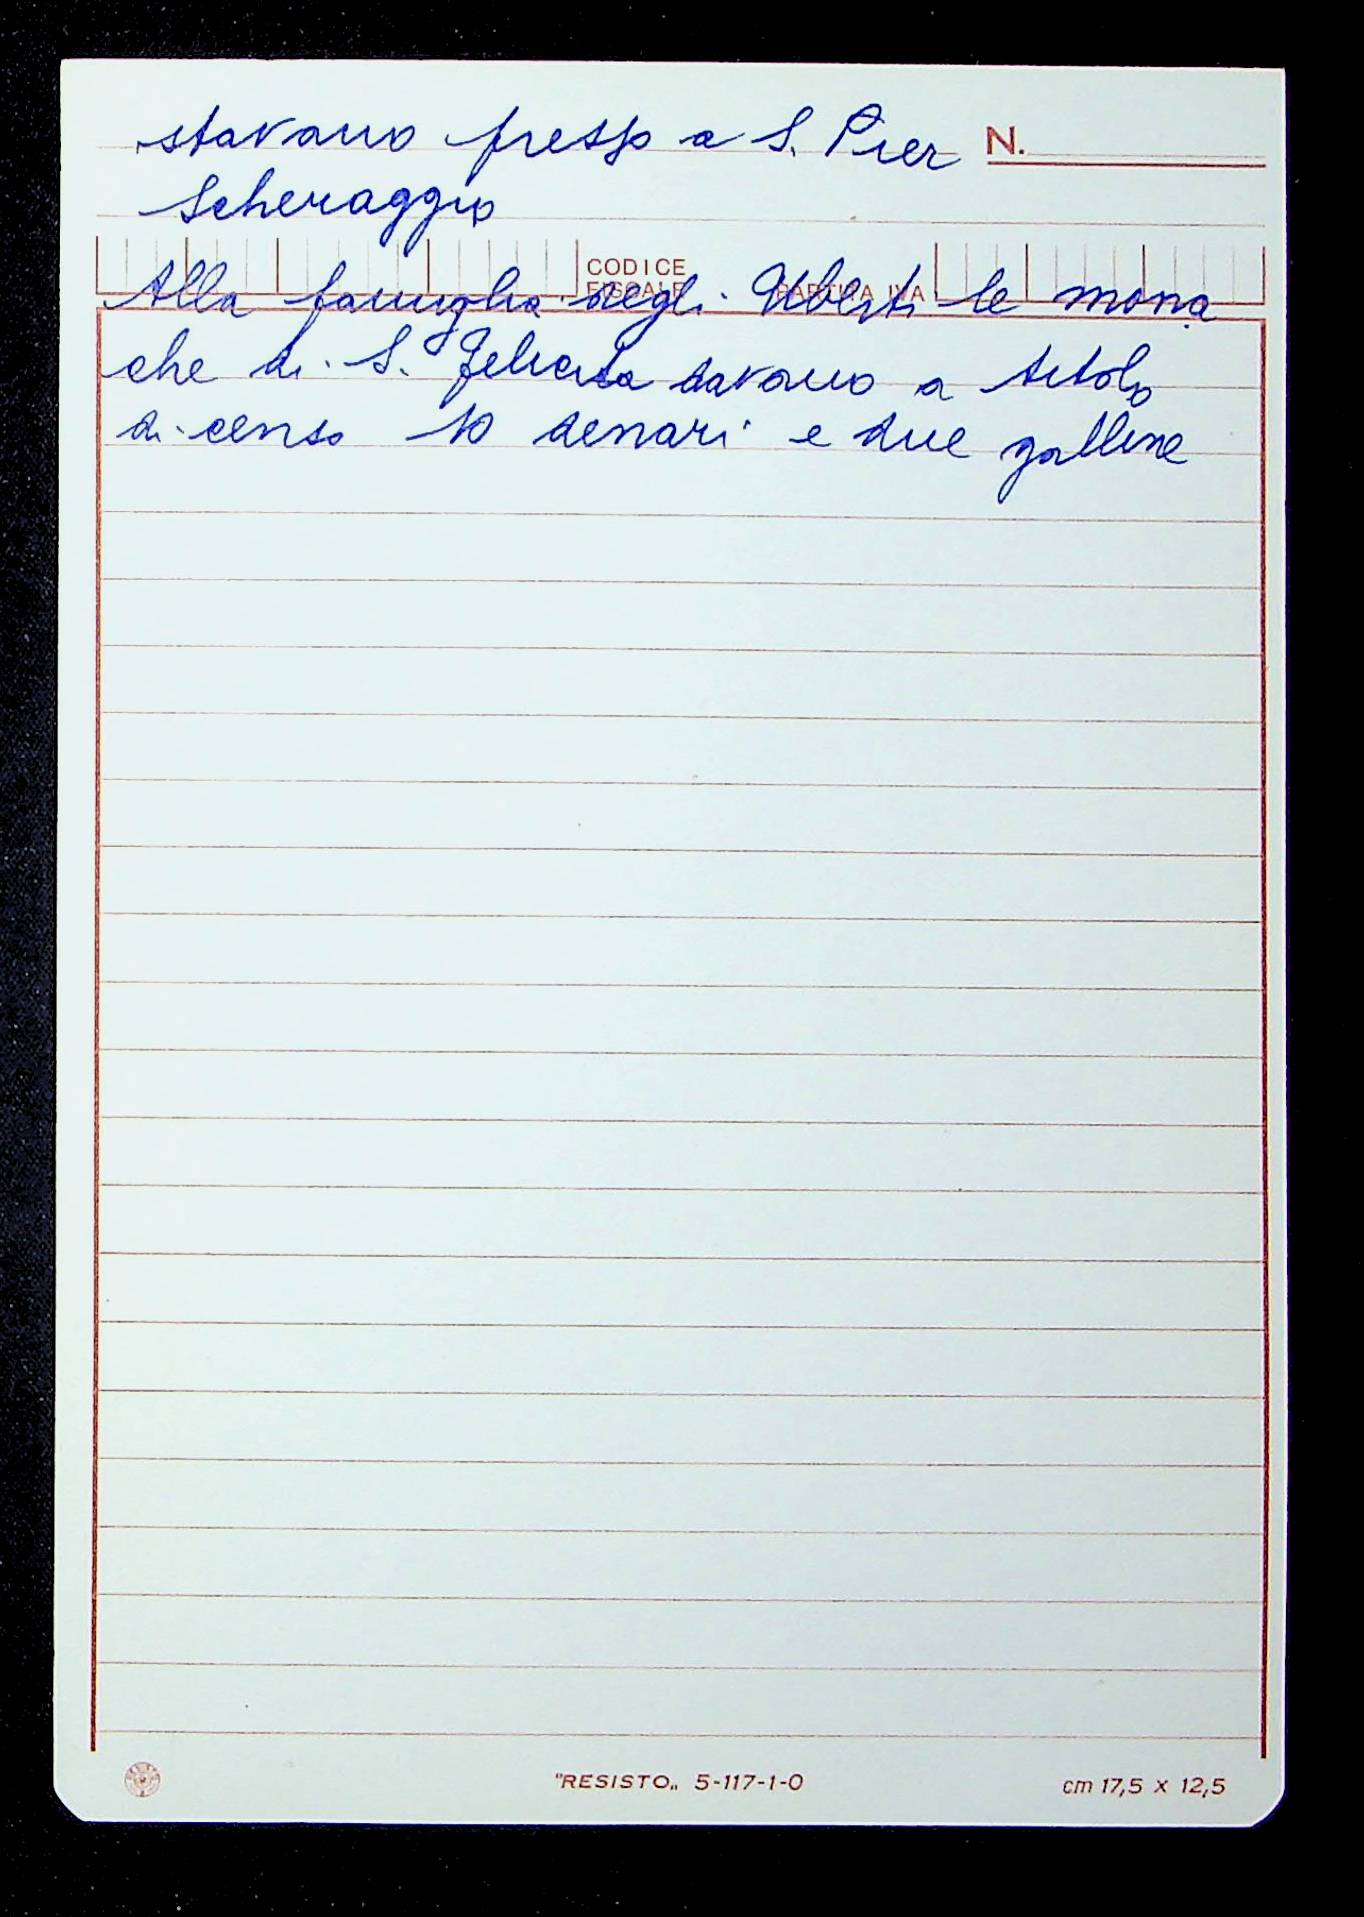 stavano presso a S. Pier N.
Scheraggio
CODICE FISCALE PARTITA IVA
Alla famiglia degli Uberti le mona
che di S. Felicita davano a titolo
di censo 10 denari e due galline
"RESISTO„ 5-117-1-0 cm 17,5 x 12,5